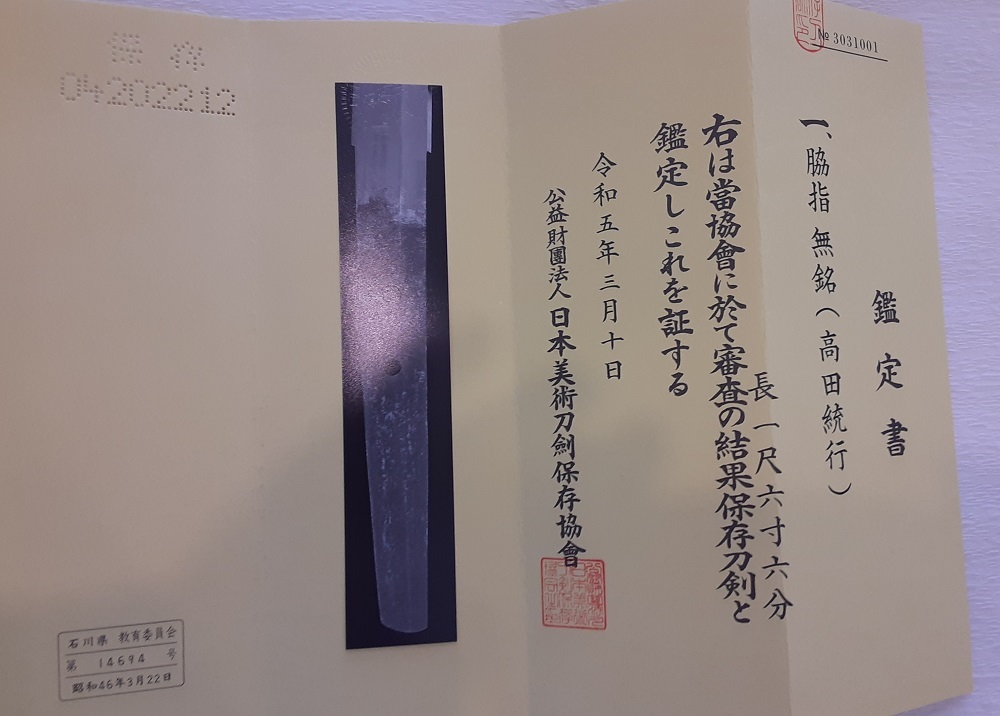 № 3031001
鑑定書
一、脇指 無銘(高田統行)
長 一尺六寸六分
右は當協會に於て審査の結果保存刀剣と
鑑定しこれを証する
令和五年三月十日
公益財團法人 日本美術刀劍保存協會
保存
04202212
石川県 教育委員会
第 14694 号
昭和46年3月22日